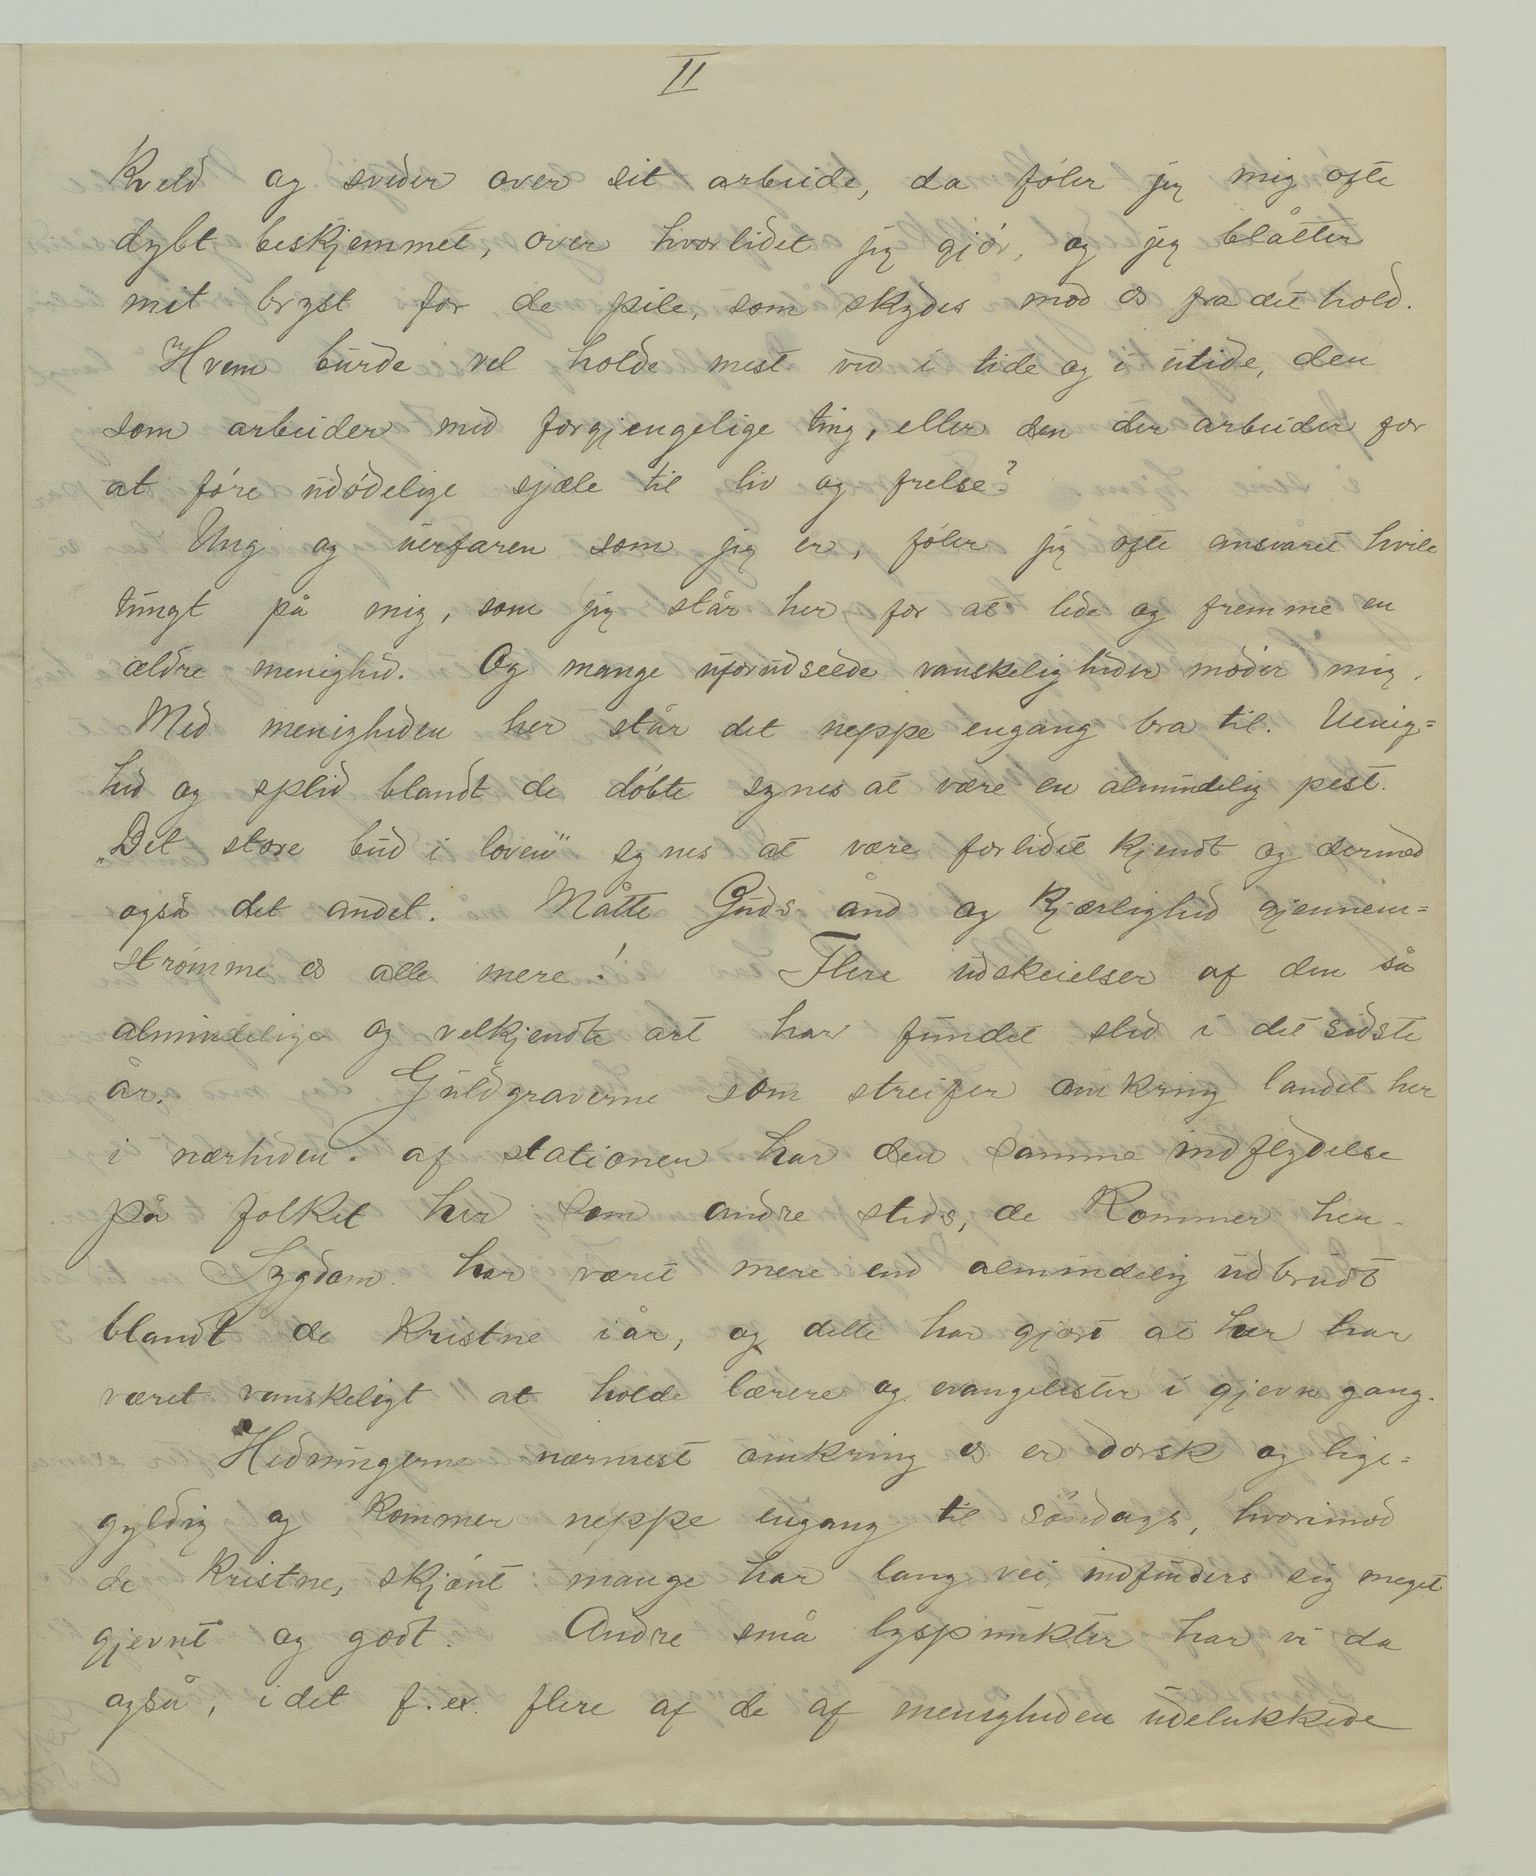 II
Kveld og sveder over sit arbeide, da føler jeg mig ofte
dybt beskjemmet, over hvorlidet jeg gjør, og jeg blåtter
mit bryst for de pile, som skydes mod os fra det hold.
Hvem burde vel holde mest ved i tide og i utide, den
som arbeider med forgjengelige ting, eller den der arbeider for
at føre udødelige sjæle til liv og frelse?
Ung og uerfaren som jeg er, føler jeg ofte ansvaret hvile
tungt på mig, som jeg står her for at lede og fremme en
ældre menighed. Og mange uforudseede vanskeligheder møder mig.
Med menigheden her står det neppe engang bra til. Uenig=
hed og splid blandt de døbte synes at være en almindelig pest.
„Det store bud i loven" synes at være forlidet kjendt og dermed
også det andet. Måtte Guds ånd og kjærlighed gjennem=
strømme os alle mere! Flere udskeielser af den så
almindelige og velkjendte art har fundet sted i det sidste
år. Guldgraverne som streifer omkring landet her
i nærheden af stationen har den samme indflydelse
på folket her som andre steds, de kommer hen.
Sygdom har været mere end almindelig udbrudt
blandt de kristne i år, og dette har gjort at her har
været vanskeligt at holde lærere og evangelister i gjevn gang.
Hedningerne nærmest omkring os er dorsk og lige=
gyldig og kommer neppe engang til søndags, hvorimod
de kristne, skjønt mange har lang vei, indfinders sig meget
gjevnt og godt. Andre små lyspunkter har vi da
også, idet f. ex. flere af de af menigheden udelukkede